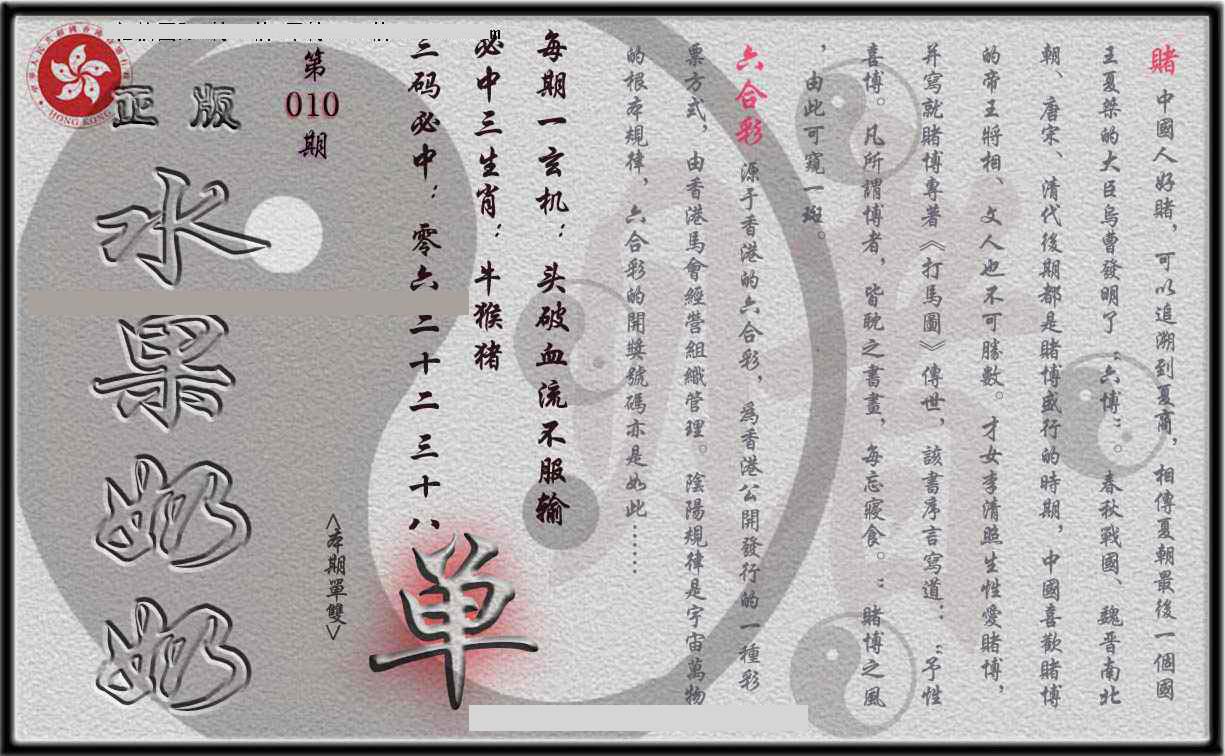 賭 中國人好賭，可以追溯到夏商，相傳夏朝最後一個國
王夏桀的大臣烏曹發明了“六博”。春秋戰國、魏晋南北
朝、唐宋、清代後期都是賭博盛行的時期，中國喜歡賭博
的帝王將相、文人也不可勝數。才女李清照生性愛賭博，
并寫就賭博專著《打馬圖》傳世，該書序言寫道：“予性
喜博。凡所謂博者，皆耽之書畫，每忘寢食。”賭博之風
，由此可窺一斑。
六合彩 源于香港的六合彩，爲香港公開發行的一種彩
票方式，由香港馬會經營組織管理。陰陽規律是宇宙萬物
的根本規律，六合彩的開獎號碼亦是如此……
每期一玄机：头破血流不服输
必中三生肖：牛猴猪
三码必中：零六二十二三十八
第
010
期
<本期單雙>
单
正版
水果奶奶
HONG KONG